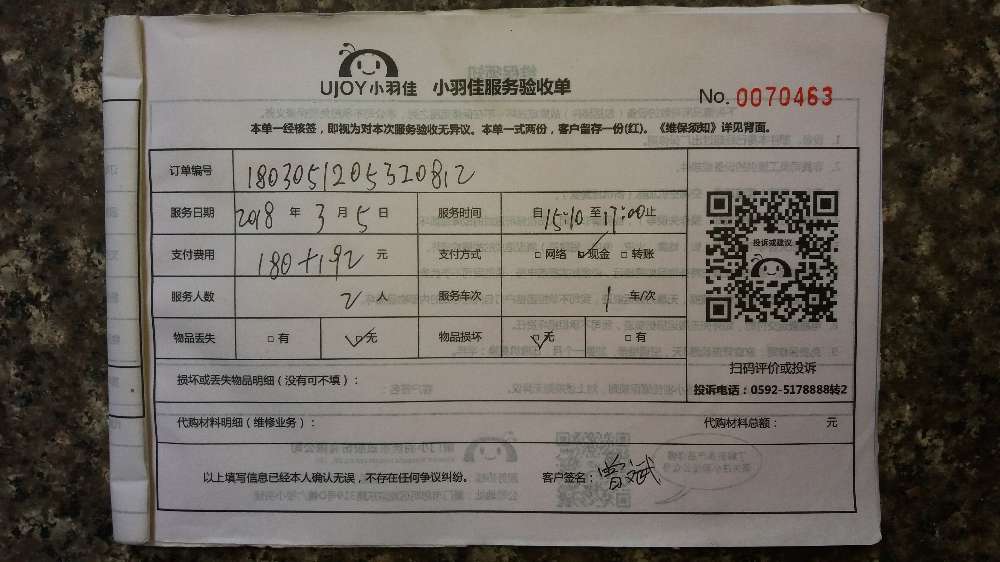 UJOY小羽佳 小羽佳服务验收单
No. 0070463
本单一经核签，即视为对本次服务验收无异议。本单一式两份，客户留存一份(红)。《维保须知》详见背面。
订单编号 1803051205320812
服务日期 2018 年 3 月 5 日 服务时间 自 15:10 至 17:00 止
支付费用 180+192 元 支付方式 □网络 □现金 □转账
服务人数 2 人 服务车次 1 车/次
物品丢失 □有 □无 物品损坏 □无 □有
投诉或建议
扫码评价或投诉
投诉电话：0592-5178888转2
损坏或丢失物品明细（没有可不填）：
代购材料明细（维修业务）： 代购材料总额： 元
以上填写信息已经本人确认无误，不存在任何争议纠纷。 客户签名：曾斌